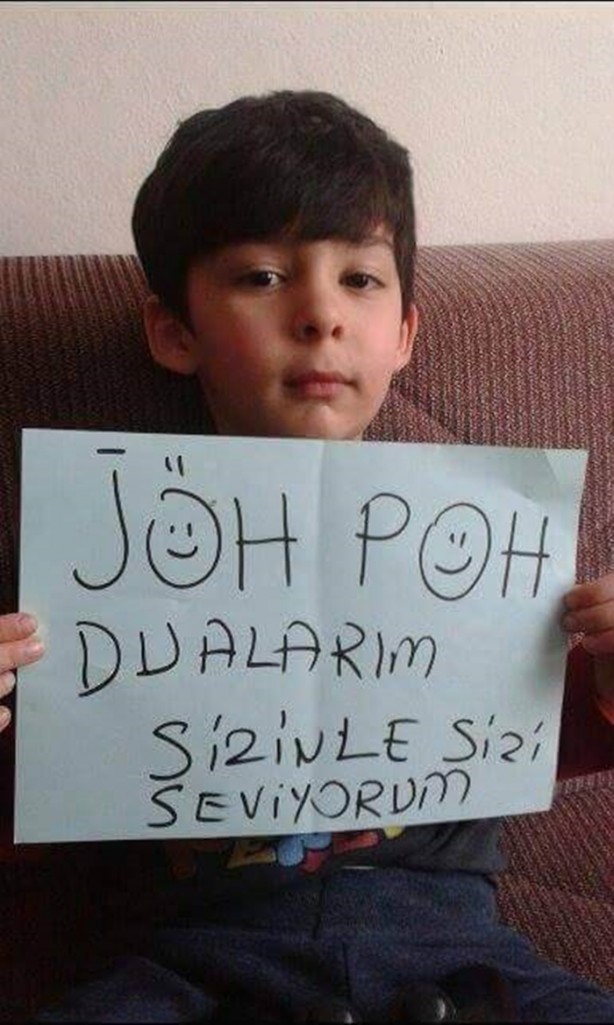 JÖH POH
DUALARIM
SİZİNLE SİZİ
SEVİYORUM